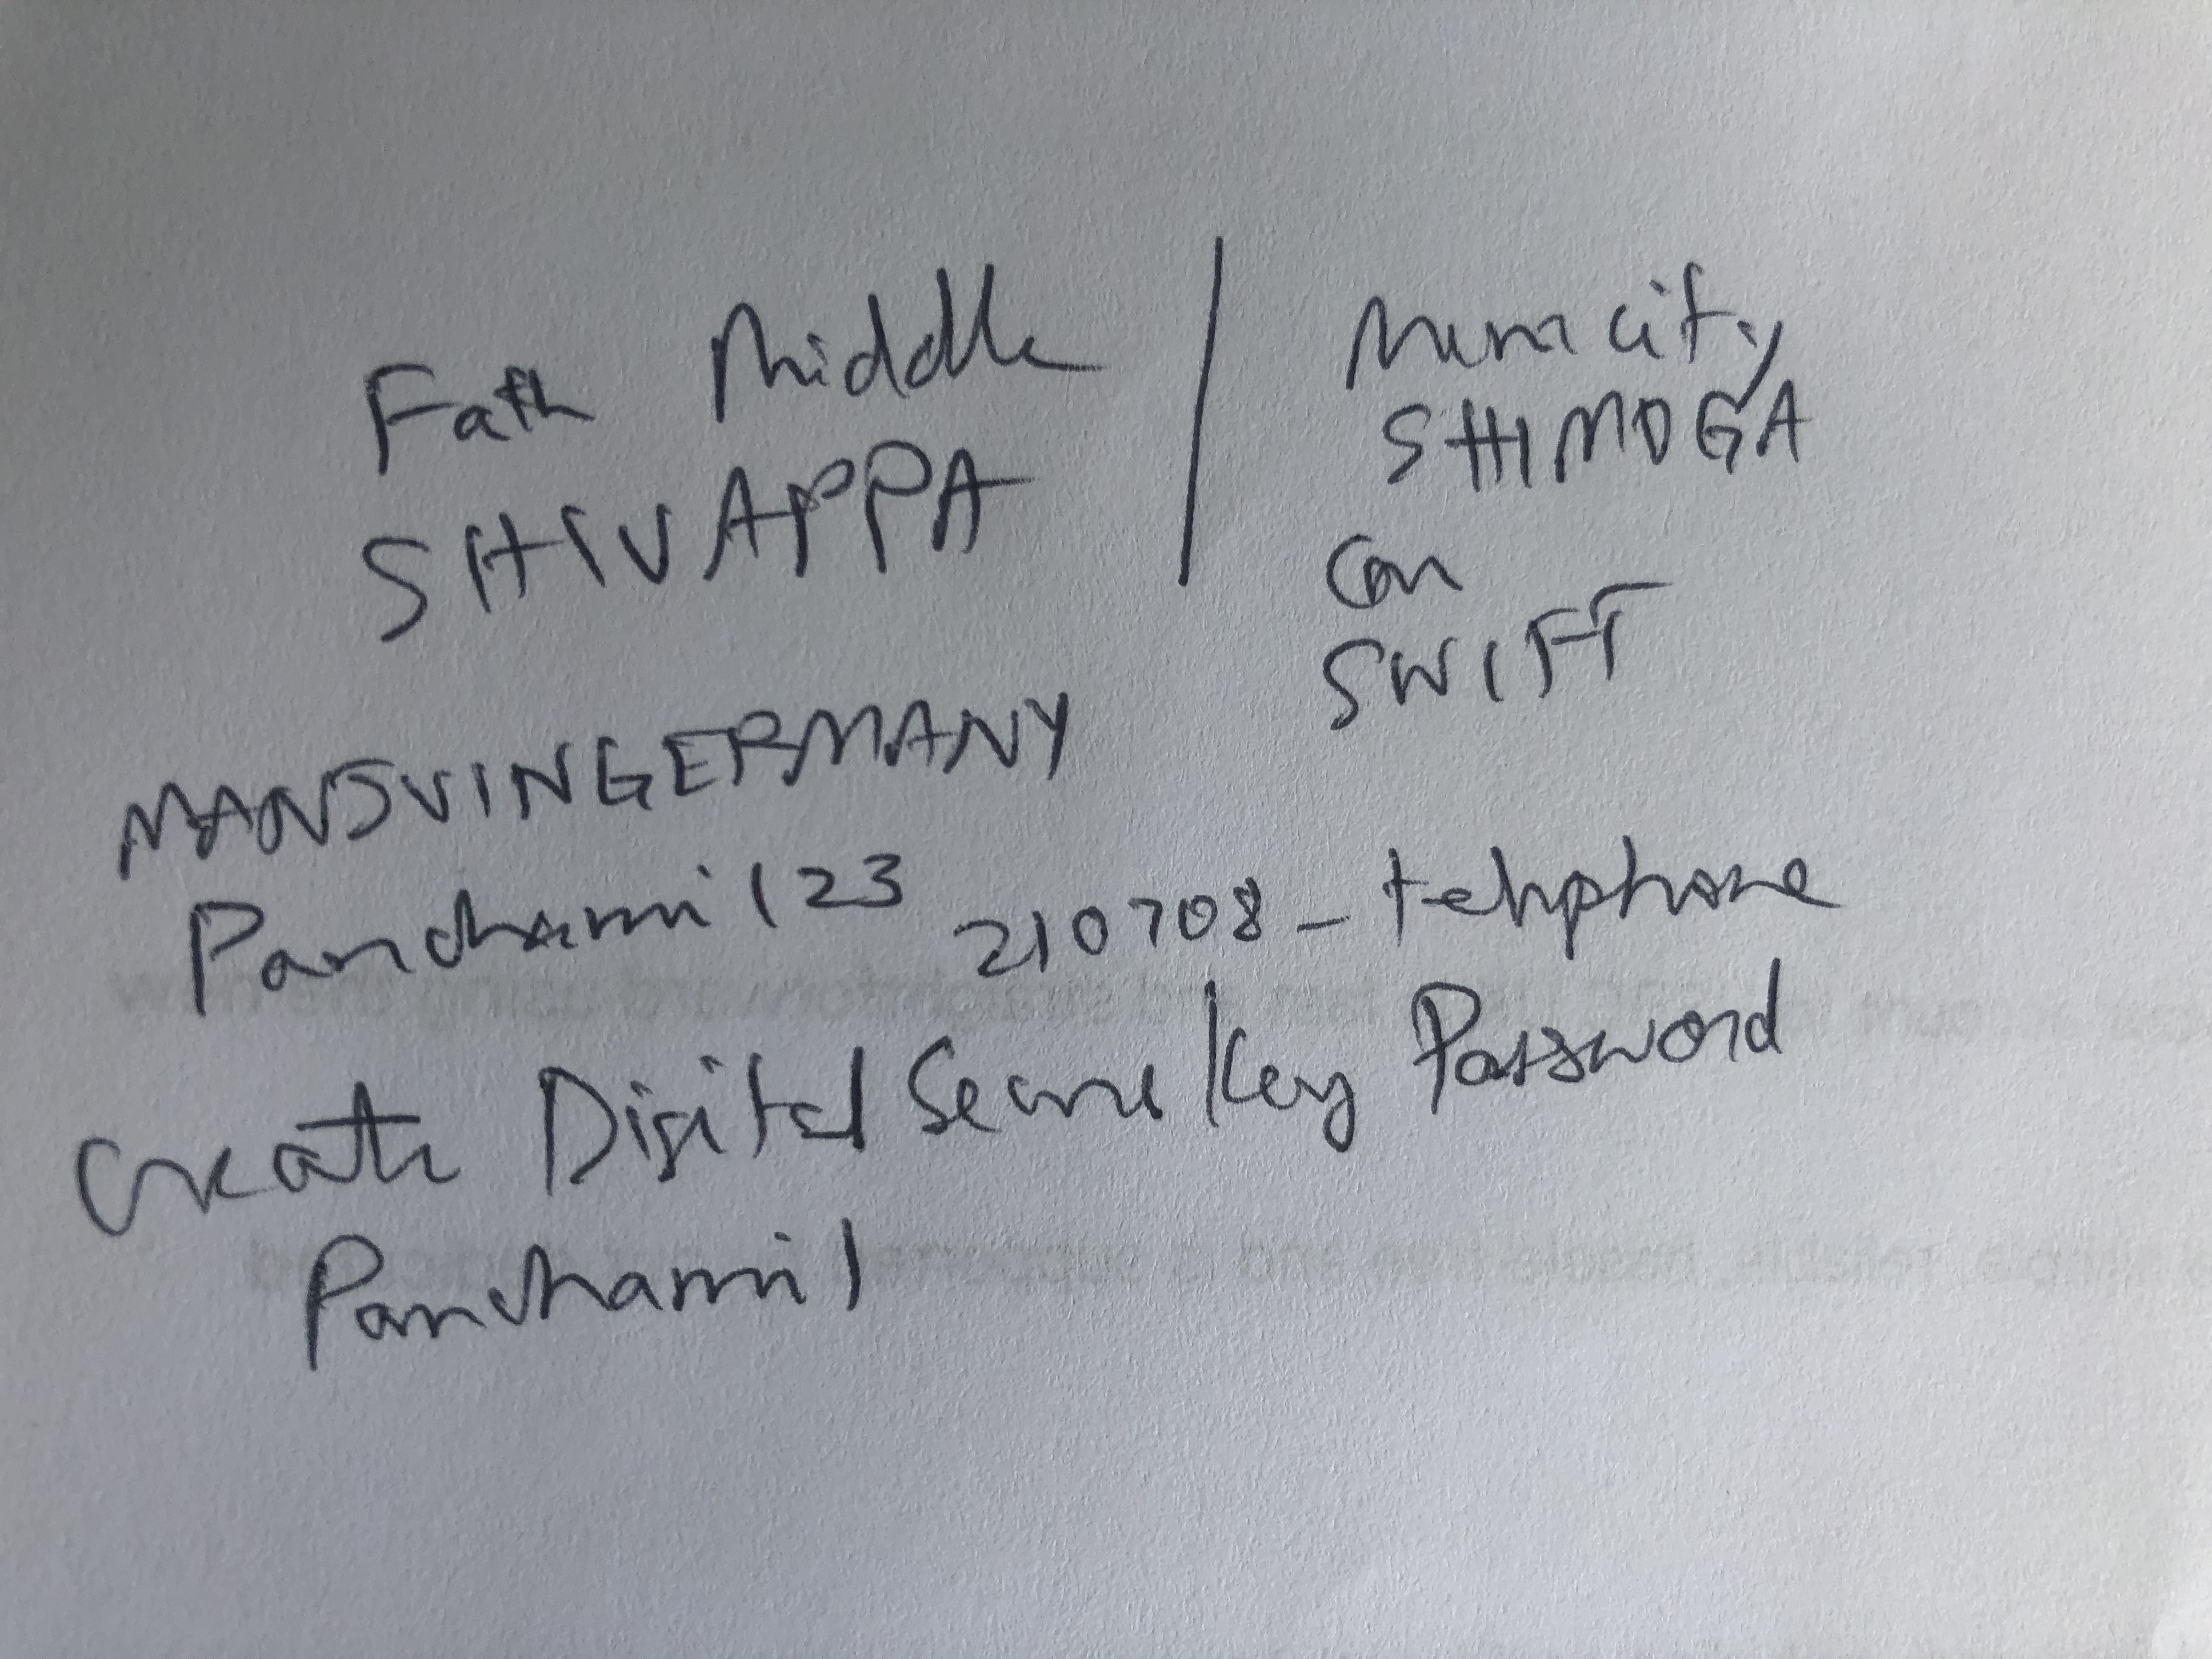 Fath Middle / Mum city
SHIVAPPA SHIMOGA
Car
SWIFT
MANSVINGEPMANY
Panchami 123 210708 - telephone
Digital Secure Key Password
Panchami 1